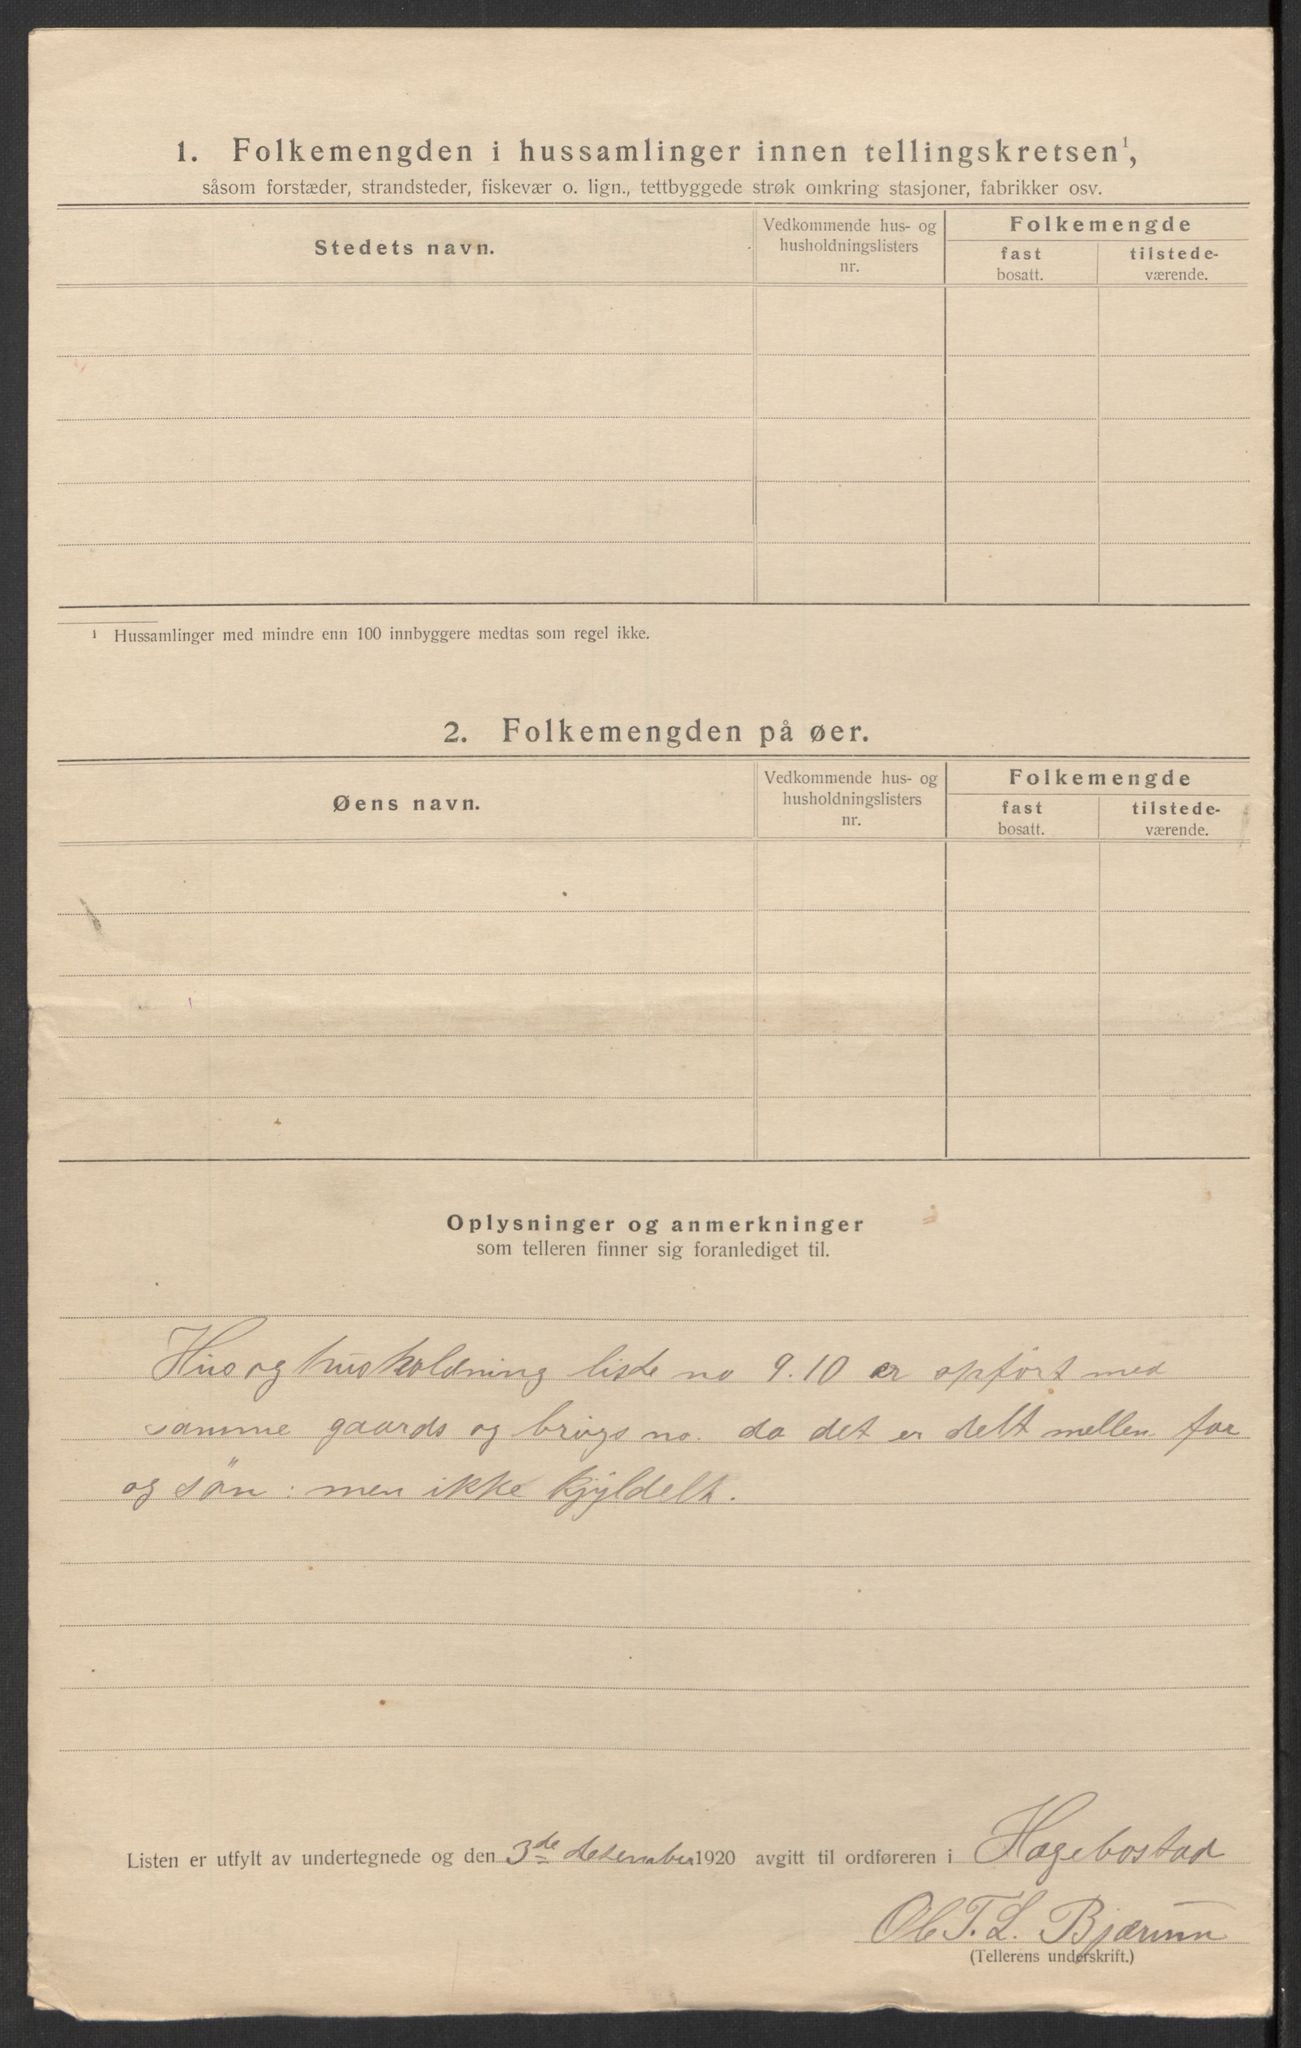 1. Folkemengden i hussamlinger innen tellingskretsen¹,
såsom forstæder, strandsteder, fiskevær o. lign., tettbyggede strøk omkring stasjoner, fabrikker osv.
Stedets navn.
Vedkommende hus- og
husholdningslisters
nr.
Folkemengde
fast
bosatt.
tilstede-
værende.
¹ Hussamlinger med mindre enn 100 innbyggere medtas som regel ikke.
2. Folkemengden på øer.
Øens navn.
Vedkommende hus- og
husholdningslisters
nr.
Folkemengde
fast
bosatt.
tilstede-
værende.
Oplysninger og anmerkninger
som telleren finner sig foranlediget til.
Hus og husholdning liste no 9.10 er opført med
samme gaards og brugs no. da det er delt mellem far
og søn : men ikke
Listen er utfylt av undertegnede og den 3de desember 1920 avgitt til ordføreren i Hægebostad
T. L. Bjærum
(Tellerens underskrift.)